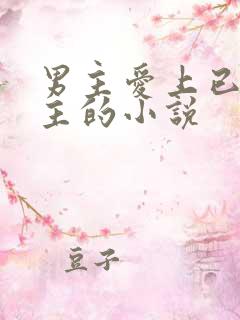 男主愛上已
主的小說
豆子